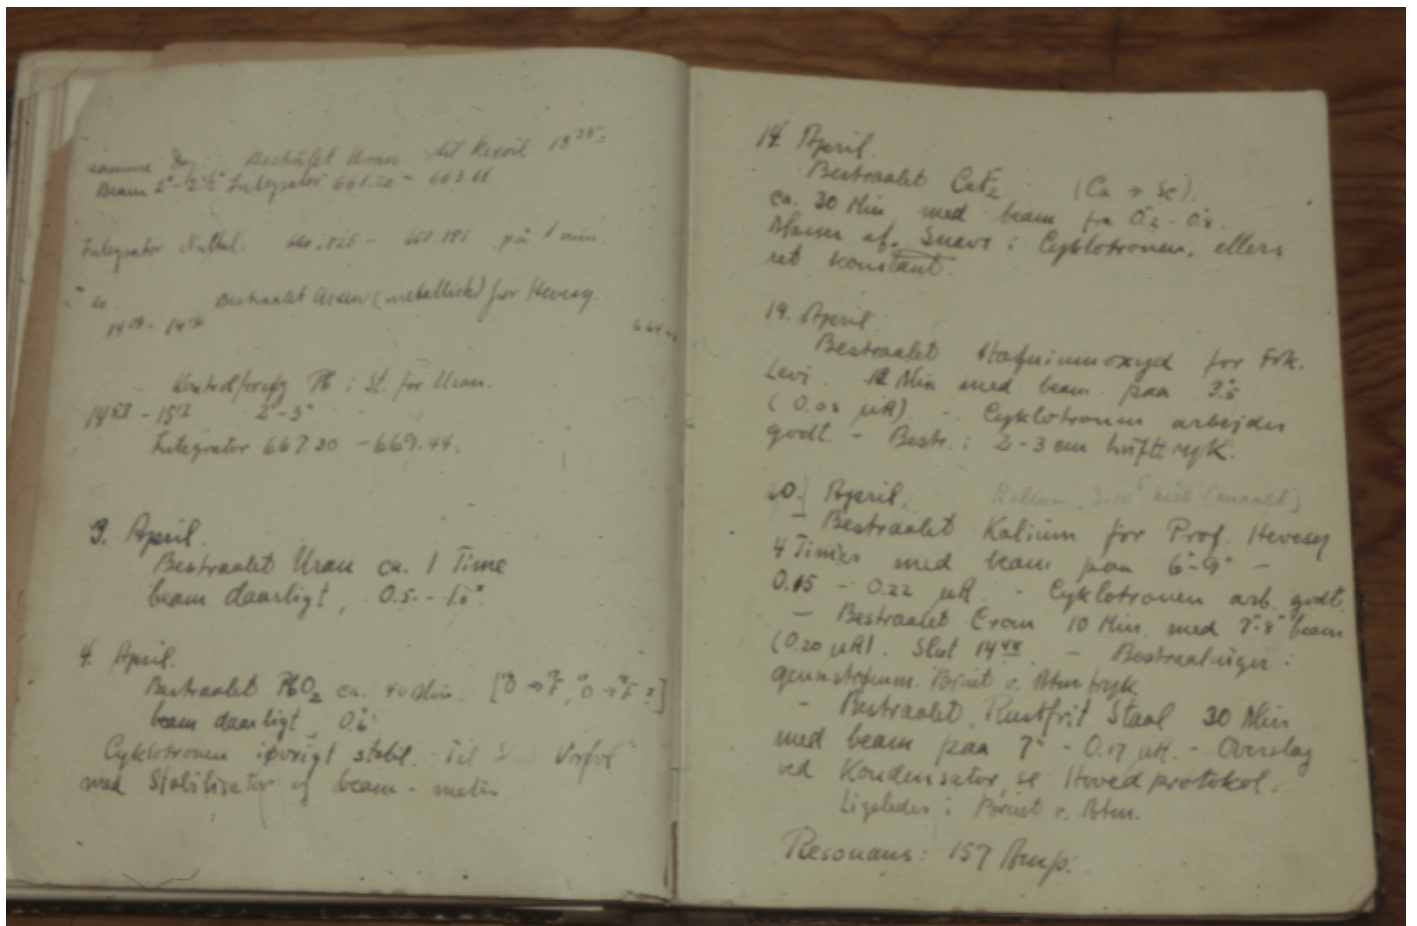 samme Dag. Bestraalet Uran til Recoil 18³⁵
Beam 2°-2½° Integrator 661.20 - 663.11.
Integrator Nulhul. 661.185 på 1 min.
do.
Bestraalet Arsen (metallisk) for Hevesy.
14 - 14
664
- Kontrolforsøg Pb i St. for Uran.
14 - 15 2°-3°
Integrator 667.30 - 669.44.
3. April.
Bestraalet Uran ca. 1 Time
beam daarligt, 0.5 - 1.0°.
4. April.
Bestraalet PbO₂ ca. 40 Min. [O → F, O → F ?]
beam daarligt, 0.6
Cyklotronen iøvrigt stabil. Til
med Stabilisator og beam-meter
14. April.
Bestraalet CaF₂ (Ca → Sc).
ca. 30 Min med beam fra 0.2 - 0.8.
Masser af Snavs i Cyklotronen, ellers
ret konstant.
19. April.
Bestraalet Hafniumoxyd for Frk.
Levi. 12 Min med beam paa 3.5
(0.08 µA). - Cyklotronen arbejder
godt. - Bestr. i 2-3 cm Lufttryk.
20. April. 3.10⁵ (maalt)
- Bestraalet Kalium for Prof. Hevesy
4 Timer med beam paa 6°-9° -
0.15 - 0.22 µA. - Cyklotronen arb. godt.
- Bestraalet Crom 10 Min. med 7°-8° beam
(0.20 µA). Slut 14⁴⁸. - Bestraalinger i
gennemstrømm. Brint v. Atm tryk.
- Bestraalet Rustfrit Staal 30 Min
med beam paa 7° - 0.17 µA. - Overslag
ved Kondensator, se Hovedprotokol.
Ligeledes i Brint v. Atm.
Resonans: 157 Amp.